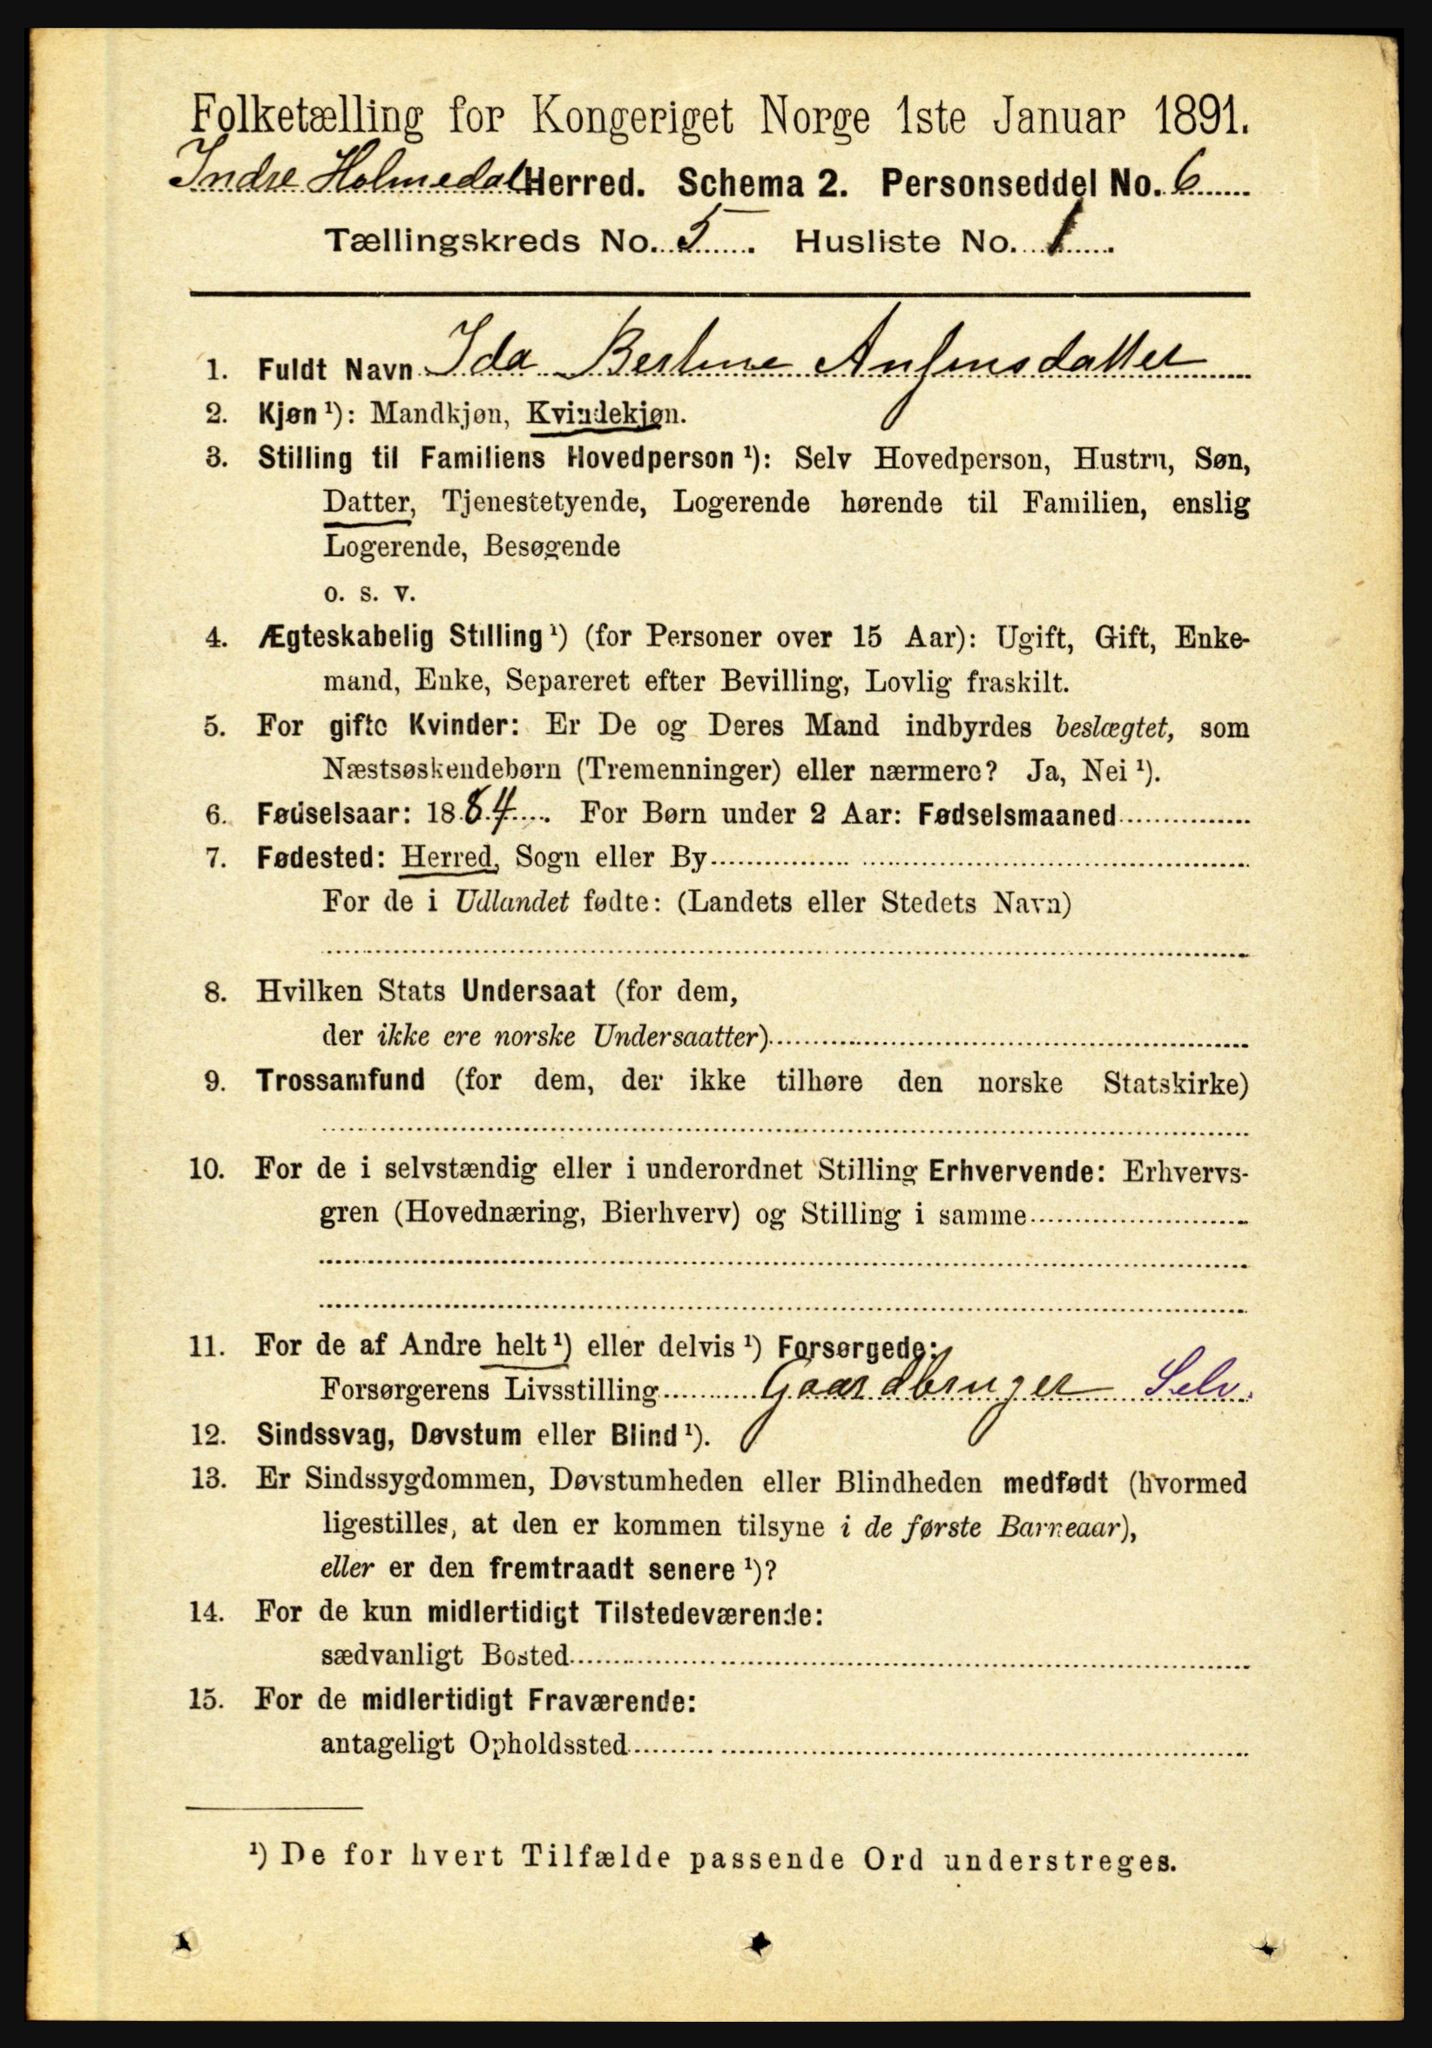 Folketælling for Kongeriget Norge 1ste Januar 1891.
Indre Holmedal Herred. Schema 2. Personseddel No. 6
Tællingskreds No. 5. Husliste No. 1.
1. Fuldt Navn Ida Bertine Anfinsdatter
2. Kjøn ¹): Mandkjøn, Kvindekjøn.
3. Stilling til Familiens Hovedperson ¹): Selv Hovedperson, Hustru, Søn,
Datter, Tjenestetyende, Logerende hørende til Familien, enslig
Logerende, Besøgende
o. s. v.
4. Ægteskabelig Stilling ¹) (for Personer over 15 Aar): Ugift, Gift, Enke-
mand, Enke, Separeret efter Bevilling, Lovlig fraskilt.
5. For gifte Kvinder: Er De og Deres Mand indbyrdes beslægtet, som
Næstsøskendebørn (Tremenninger) eller nærmere? Ja, Nei ¹).
6. Fødselsaar: 1884. For Børn under 2 Aar: Fødselsmaaned
7. Fødested: Herred, Sogn eller By
For de i Udlandet fødte: (Landets eller Stedets Navn)
8. Hvilken Stats Undersaat (for dem,
der ikke ere norske Undersaatter)
9. Trossamfund (for dem, der ikke tilhøre den norske Statskirke)
10. For de i selvstændig eller i underordnet Stilling Erhvervende: Erhvervs-
gren (Hovednæring, Bierhverv) og Stilling i samme
11. For de af Andre helt ¹) eller delvis ¹) Forsørgede:
Forsørgerens Livsstilling Gaardbruger Selv.
12. Sindssvag, Døvstum eller Blind ¹).
13. Er Sindssygdommen, Døvstumheden eller Blindheden medfødt (hvormed
ligestilles, at den er kommen tilsyne i de første Barneaar),
eller er den fremtraadt senere ¹)?
14. For de kun midlertidigt Tilstedeværende:
sædvanligt Bosted
15. For de midlertidigt Fraværende:
antageligt Opholdssted
¹) De for hvert Tilfælde passende Ord understreges.